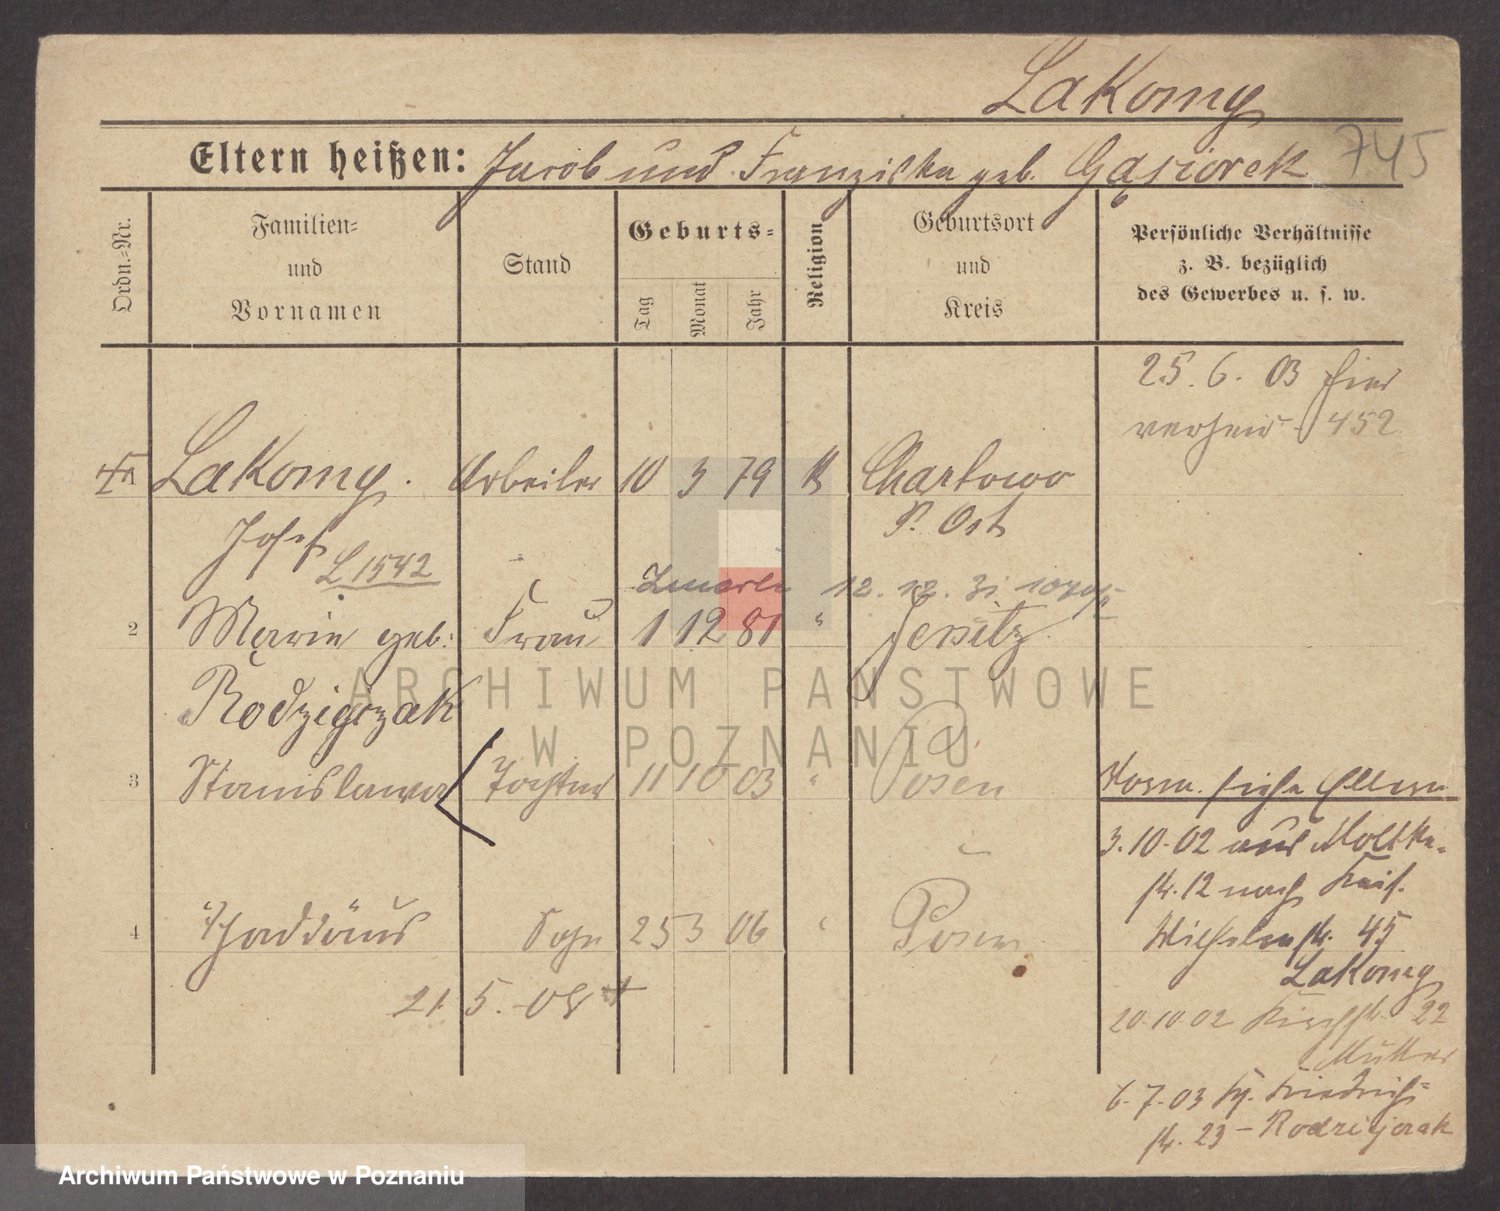 Lakomy
745
Eltern heißen: Jacob und Franziska geb. Gąsiorek
Ordn.-Nr.
Familien-
und
Vornamen
Stand
Geburts-
Tag
Monat
Jahr
Religion
Geburtsort
und
Kreis
Persönliche Verhältnisse
z. B. bezüglich
des Gewerbes u. s. w.
25. 6. 03 hier
verheir. 452
Lakomy. Arbeiter 10 3 79 K Chartowo
Josef P. Ost
L 1542
12. 12. 31
2 Marie geb: Frau 1 12 81 " Jersitz
Rodzigczak
3 Stanislawa Tochter 11 10 03 " Posen
Vorm. siehe Eltern
3. 10. 02 aus Moltke-
str. 12 nach Kais.
Wilhelmstr. 45
Lakomy
4 Thaddäus Sohn 25 3 06 " Posen
21. 5. 08 +
20 10 02 Kirchstr. 22
Mutter
6. 7. 03 Friedrich-
str. 23 - Rodzigczak
ARCHIWUM PAŃSTWOWE
W POZNANIU
Archiwum Państwowe w Poznaniu